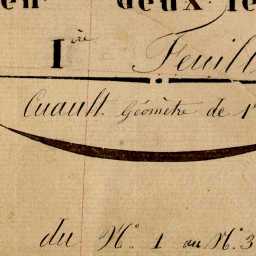 en deux fe
Ière Feuill
Cuault. Géomètre de 1
du N.º 1 au N.º 3